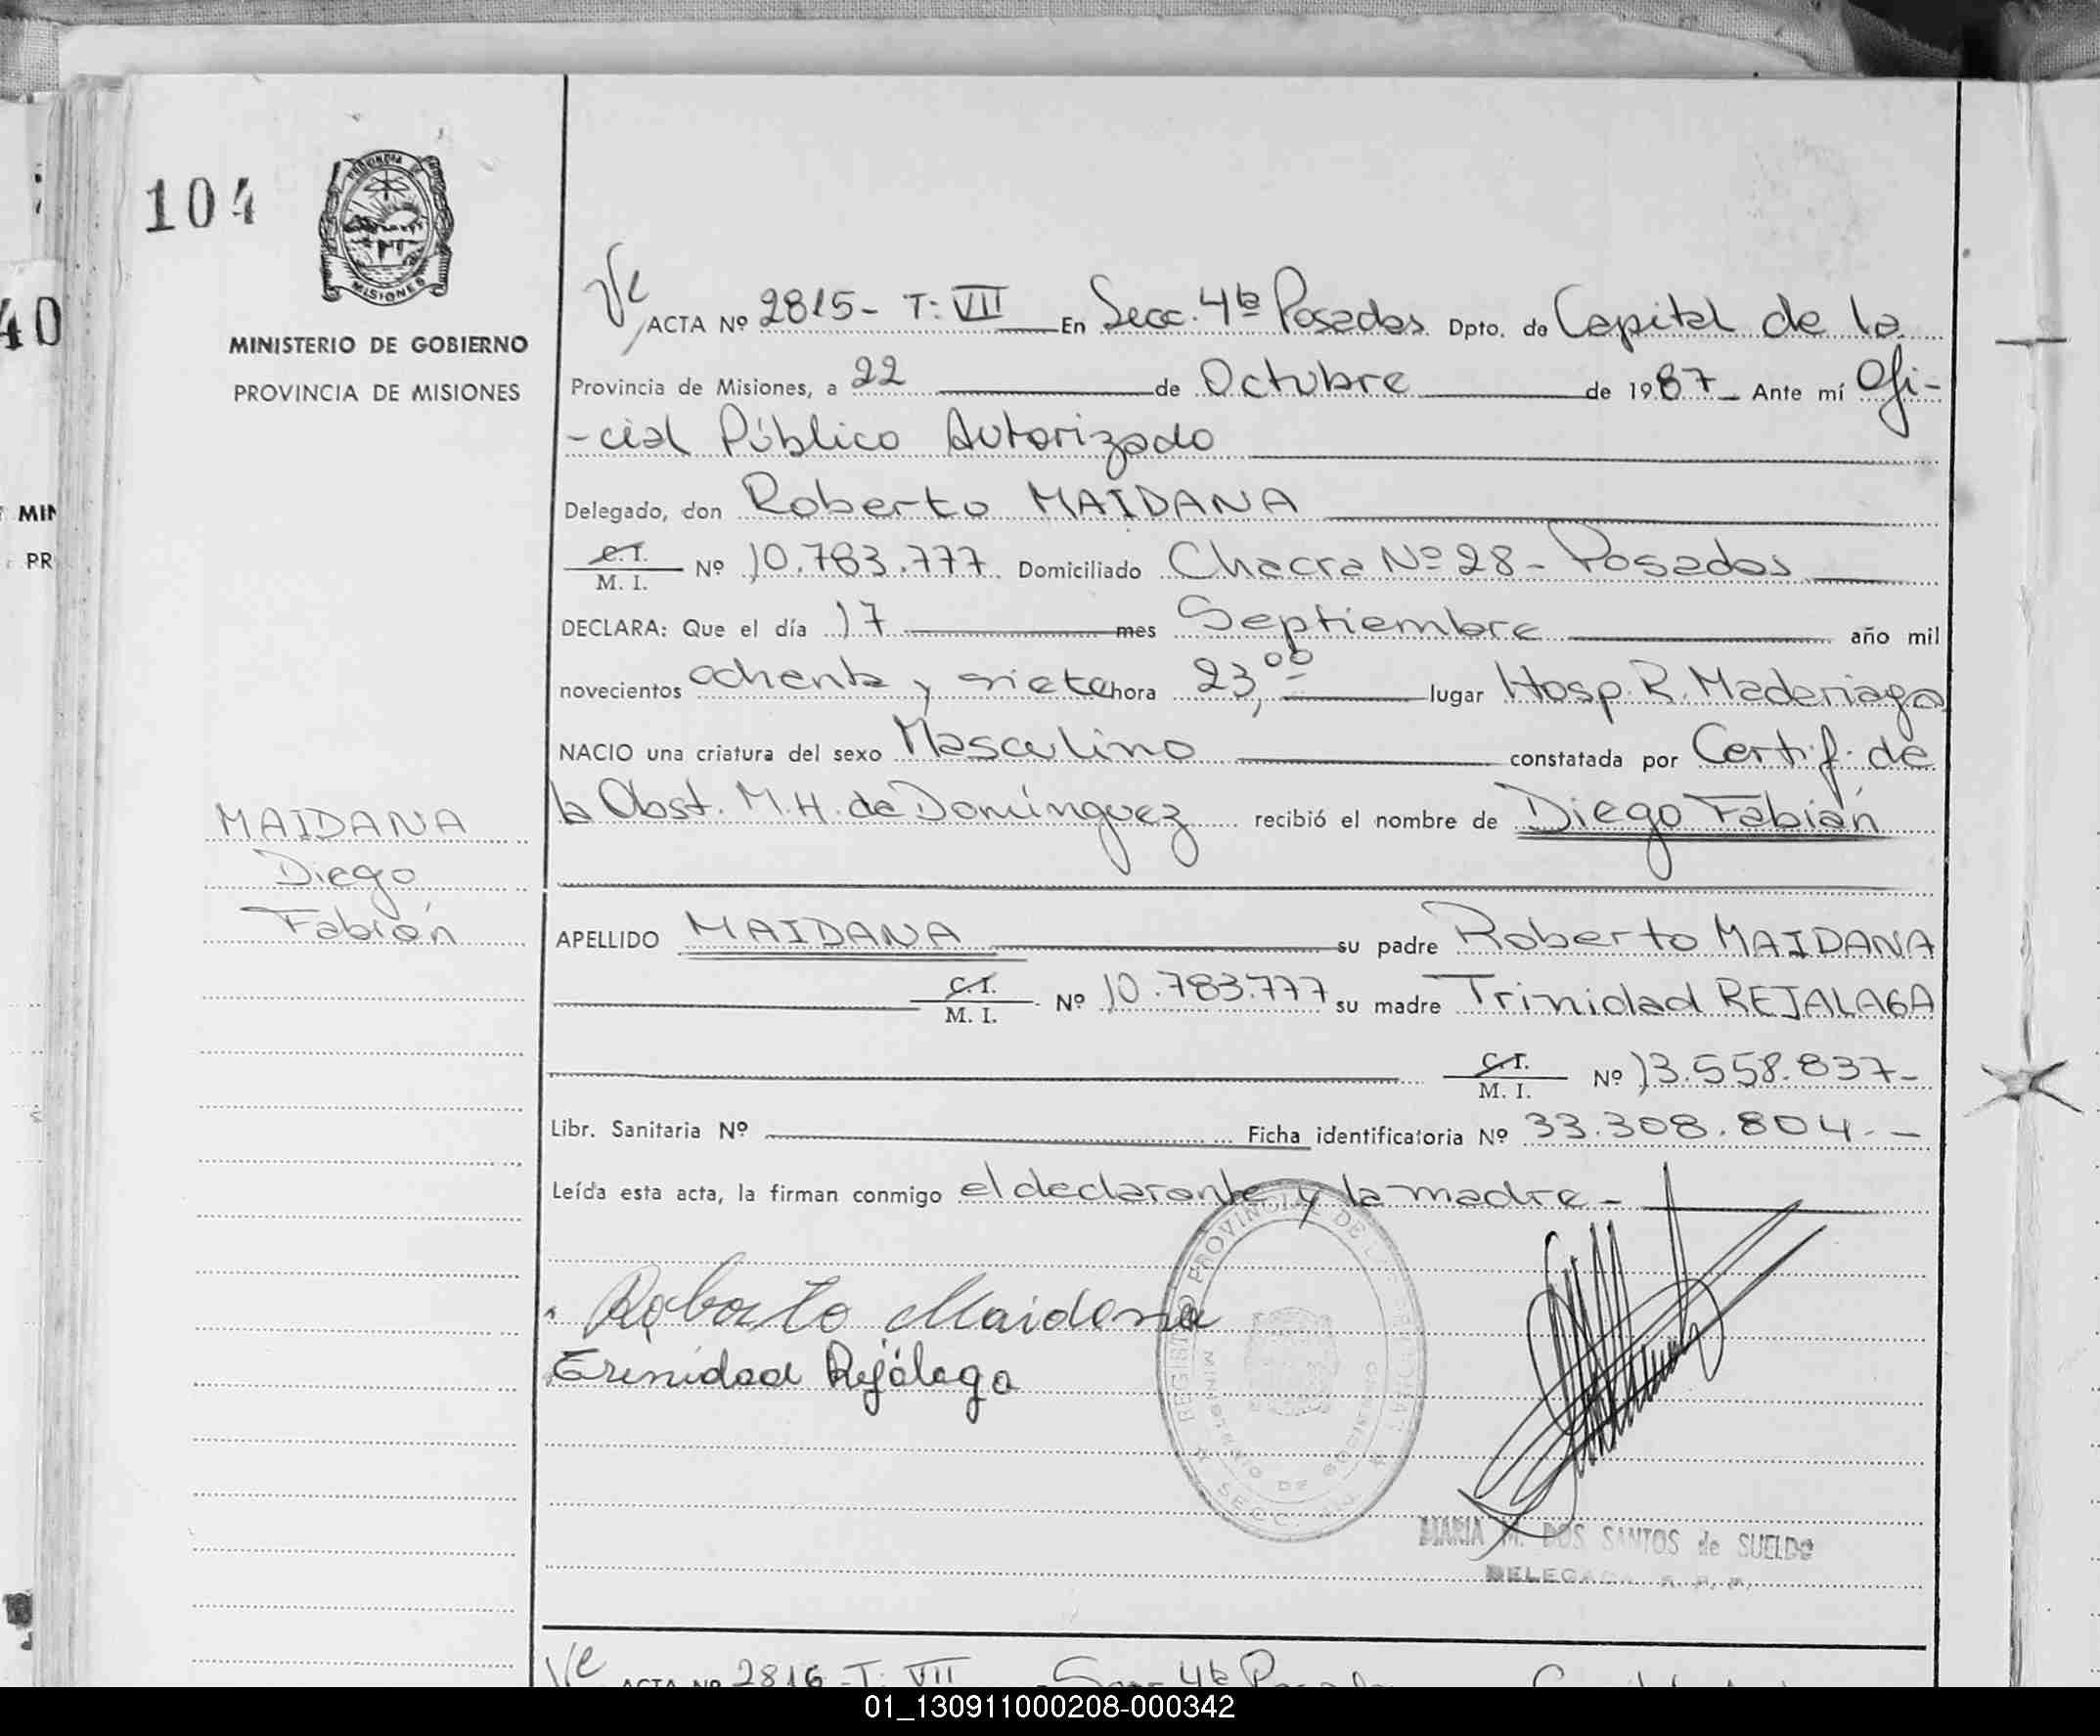 104
PROVINCIA DE
MISIONES
MINISTERIO DE GOBIERNO
PROVINCIA DE MISIONES
40
MIN
PR
ACTA Nº 2815- T: VII En Secc. 4ta Posadas Dpto. de Capital de la
Provincia de Misiones, a 22 de Octubre de 1987 Ante mí Ofi-
-cial Público Autorizado
Delegado, don Roberto MAIDANA
C.I. M. I. Nº 10.783.777 Domiciliado Chacra Nº 28 - Posadas
DECLARA: Que el día 17 mes Septiembre año mil
novecientos ochenta y siete hora 23,00 lugar Hosp. R. Maderiaga
NACIO una criatura del sexo Masculino constatada por Certif. de
la Obst. M.H. de Domínguez recibió el nombre de Diego Fabián
MAIDANA
Diego
Fabián
APELLIDO MAIDANA su padre Roberto MAIDANA
C.I. M. I. Nº 10.783.777 su madre Trinidad REJALAGA
C.I. M. I. Nº 13.558.837-
Libr. Sanitaria Nº Ficha identificatoria Nº 33.308.804.-
Leída esta acta, la firman conmigo el declarante y la madre-
Roberto Maidana
Trinidad Rejálaga
REGISTRO PROVINCIAL DE LAS PERSONAS
MINISTERIO DE GOBIERNO
SECC.
MARIA M. DOS SANTOS de SUELDO
DELEGADA R. P. P.
ACTA Nº 2816-T: VII Secc 4ta
01_130911000208-000342